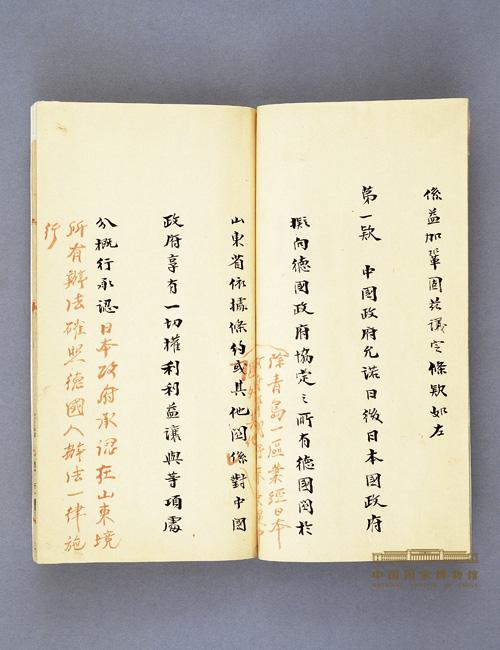 係益加鞏固茲議定條款如左
第一款 中國政府允諾日後日本國政府
擬向德國政府協定之所有德國關於
除青島一區業經日本
山東省依據條約或其他關係對中國
政府享有一切權利利益讓與等項處
分概行承認日本政府承認在山東境
所有辦法確照德國人辦法一律施
行
中国国家博物馆
NATIONAL MUSEUM OF CHINA